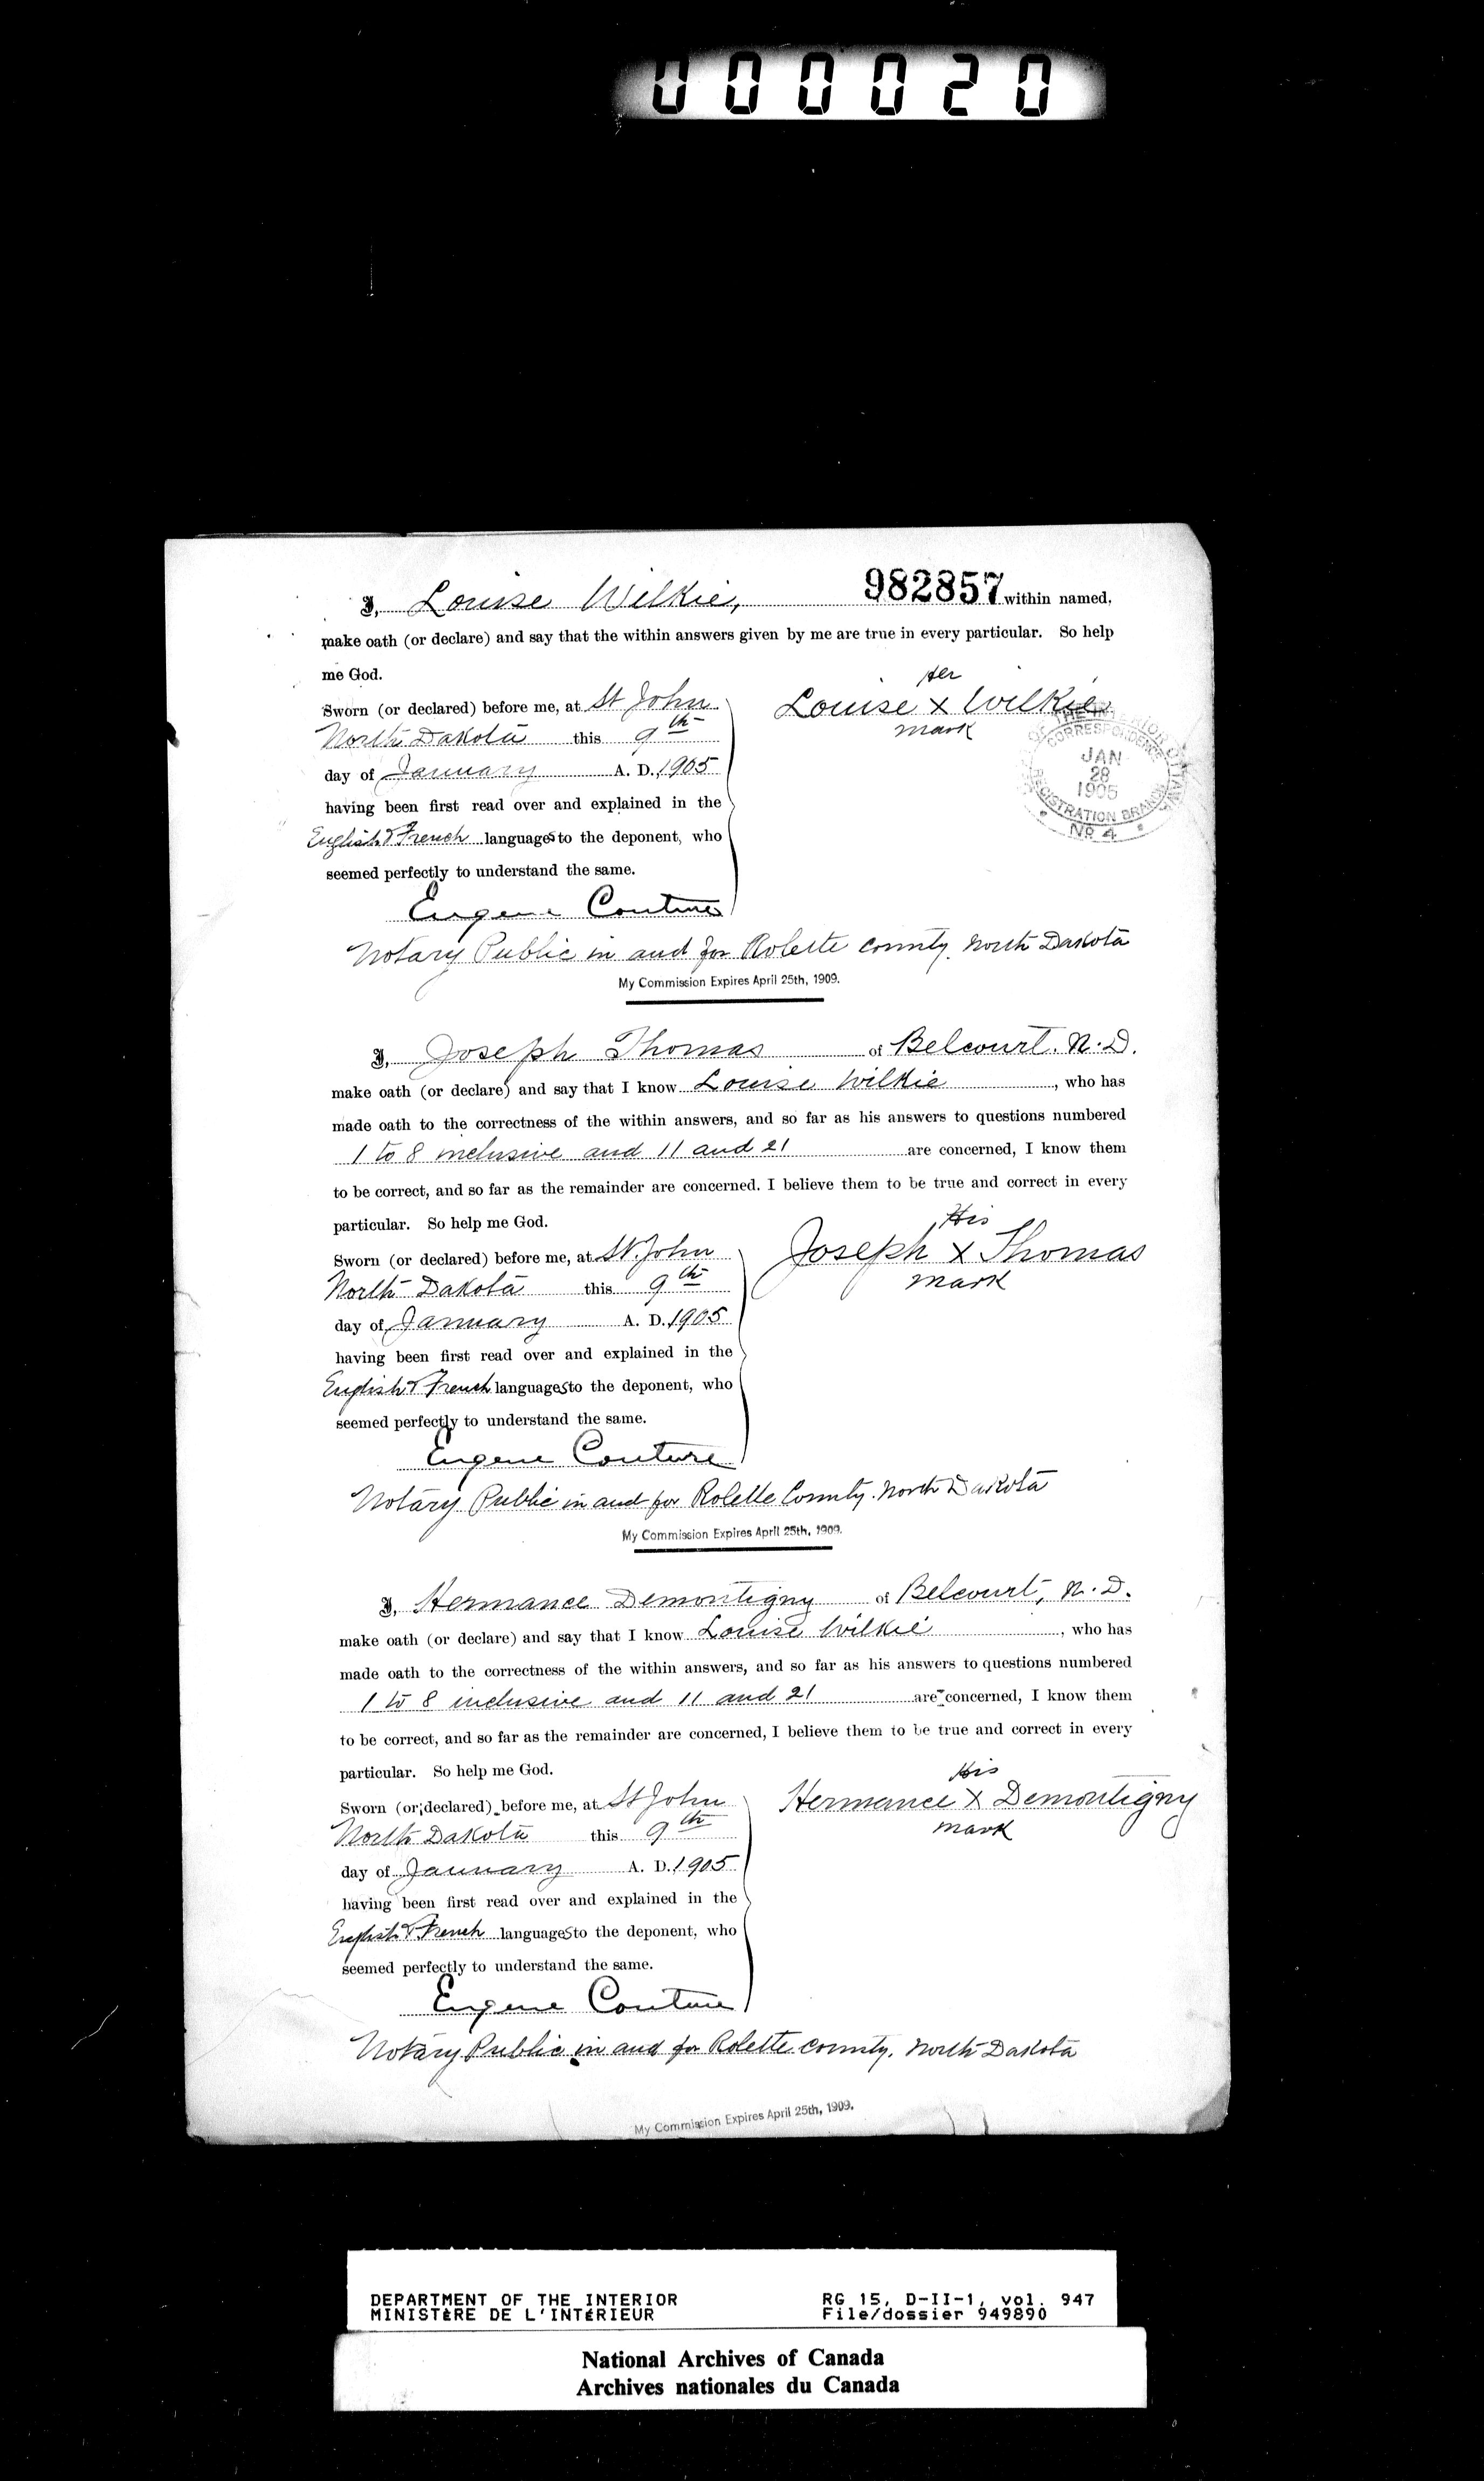 000020
I, Louise Wilkie, 982857 within named,
make oath (or declare) and say that the within answers given by me are true in every particular. So help
me God.
Her
Sworn (or declared) before me, at St John Louise x Wilkie
North Dakota this 9th mark
day of January A. D. 1905
having been first read over and explained in the
English & French languages to the deponent, who
seemed perfectly to understand the same.
THE INTERIOR OTTAWA
CORRESPONDENCE
JAN
28
1905
REGISTRATION BRANCH
No 4
Eugene Couture
Notary Public in and for Rolette county. North Dakota
My Commission Expires April 25th, 1909.
I, Joseph Thomas of Belcourt. N.D.
make oath (or declare) and say that I know Louise Wilkie, who has
made oath to the correctness of the within answers, and so far as his answers to questions numbered
1 to 8 inclusive and 11 and 21 are concerned, I know them
to be correct, and so far as the remainder are concerned. I believe them to be true and correct in every
particular. So help me God.
His
Sworn (or declared) before me, at St. John Joseph x Thomas
North Dakota this 9th mark
day of January A. D. 1905
having been first read over and explained in the
English & French languages to the deponent, who
seemed perfectly to understand the same.
Eugene Couture
Notary Public in and for Rolette County. North Dakota
My Commission Expires April 25th, 1909.
I, Hermance Demontigny of Belcourt, N.D.
make oath (or declare) and say that I know Louise Wilkie, who has
made oath to the correctness of the within answers, and so far as his answers to questions numbered
1 to 8 inclusive and 11 and 21 are concerned, I know them
to be correct, and so far as the remainder are concerned, I believe them to be true and correct in every
particular. So help me God.
His
Sworn (or declared) before me, at St John Hermance x Demontigny
North Dakota this 9th mark
day of January A. D. 1905
having been first read over and explained in the
English & French languages to the deponent, who
seemed perfectly to understand the same.
Eugene Couture
Notary Public in and for Rolette county. North Dakota
My Commission Expires April 25th, 1909.
DEPARTMENT OF THE INTERIOR RG 15, D-II-1, vol. 947
MINISTÈRE DE L'INTÉRIEUR File/dossier 949890
National Archives of Canada
Archives nationales du Canada